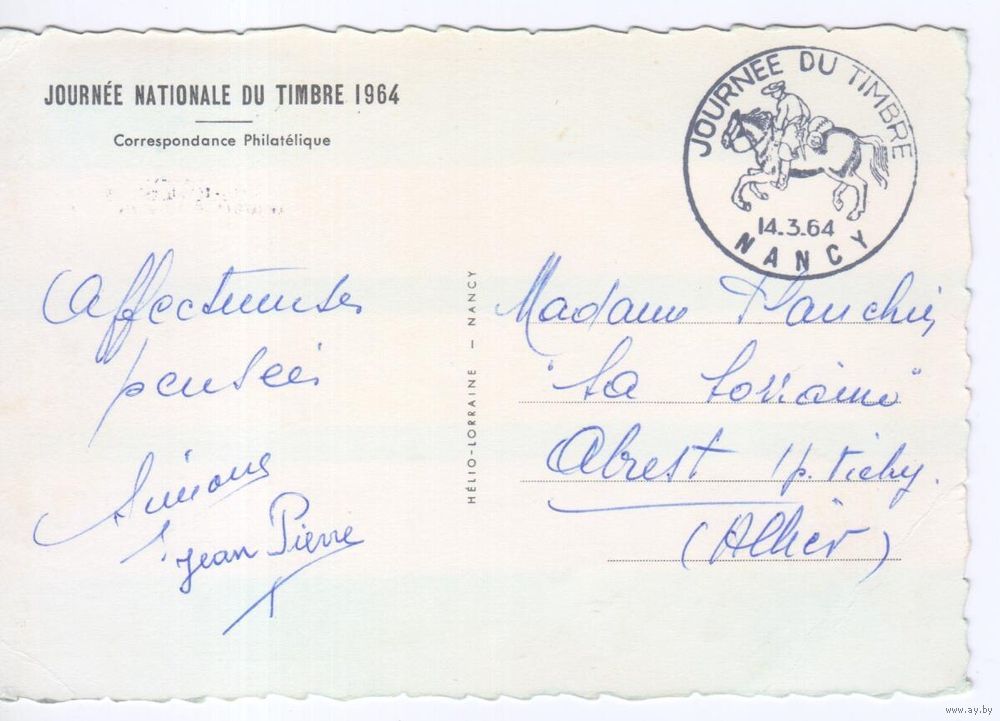 JOURNÉE NATIONALE DU TIMBRE 1964
Correspondance Philatélique
JOURNEE DU TIMBRE
14.3.64
NANCY
Affectueuses
pensées
Simone
Jean Pierre
HÉLIO-LORRAINE - NANCY
Madame
"La Lorraine"
Abrest /p. Vichy.
(Allier)
www.ay.by